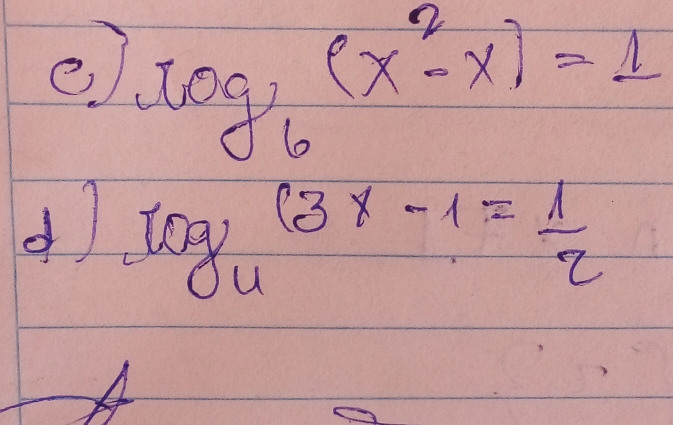 c) log₆ (x² - x) = 1
d) log₄ (3x - 1 = 1/2